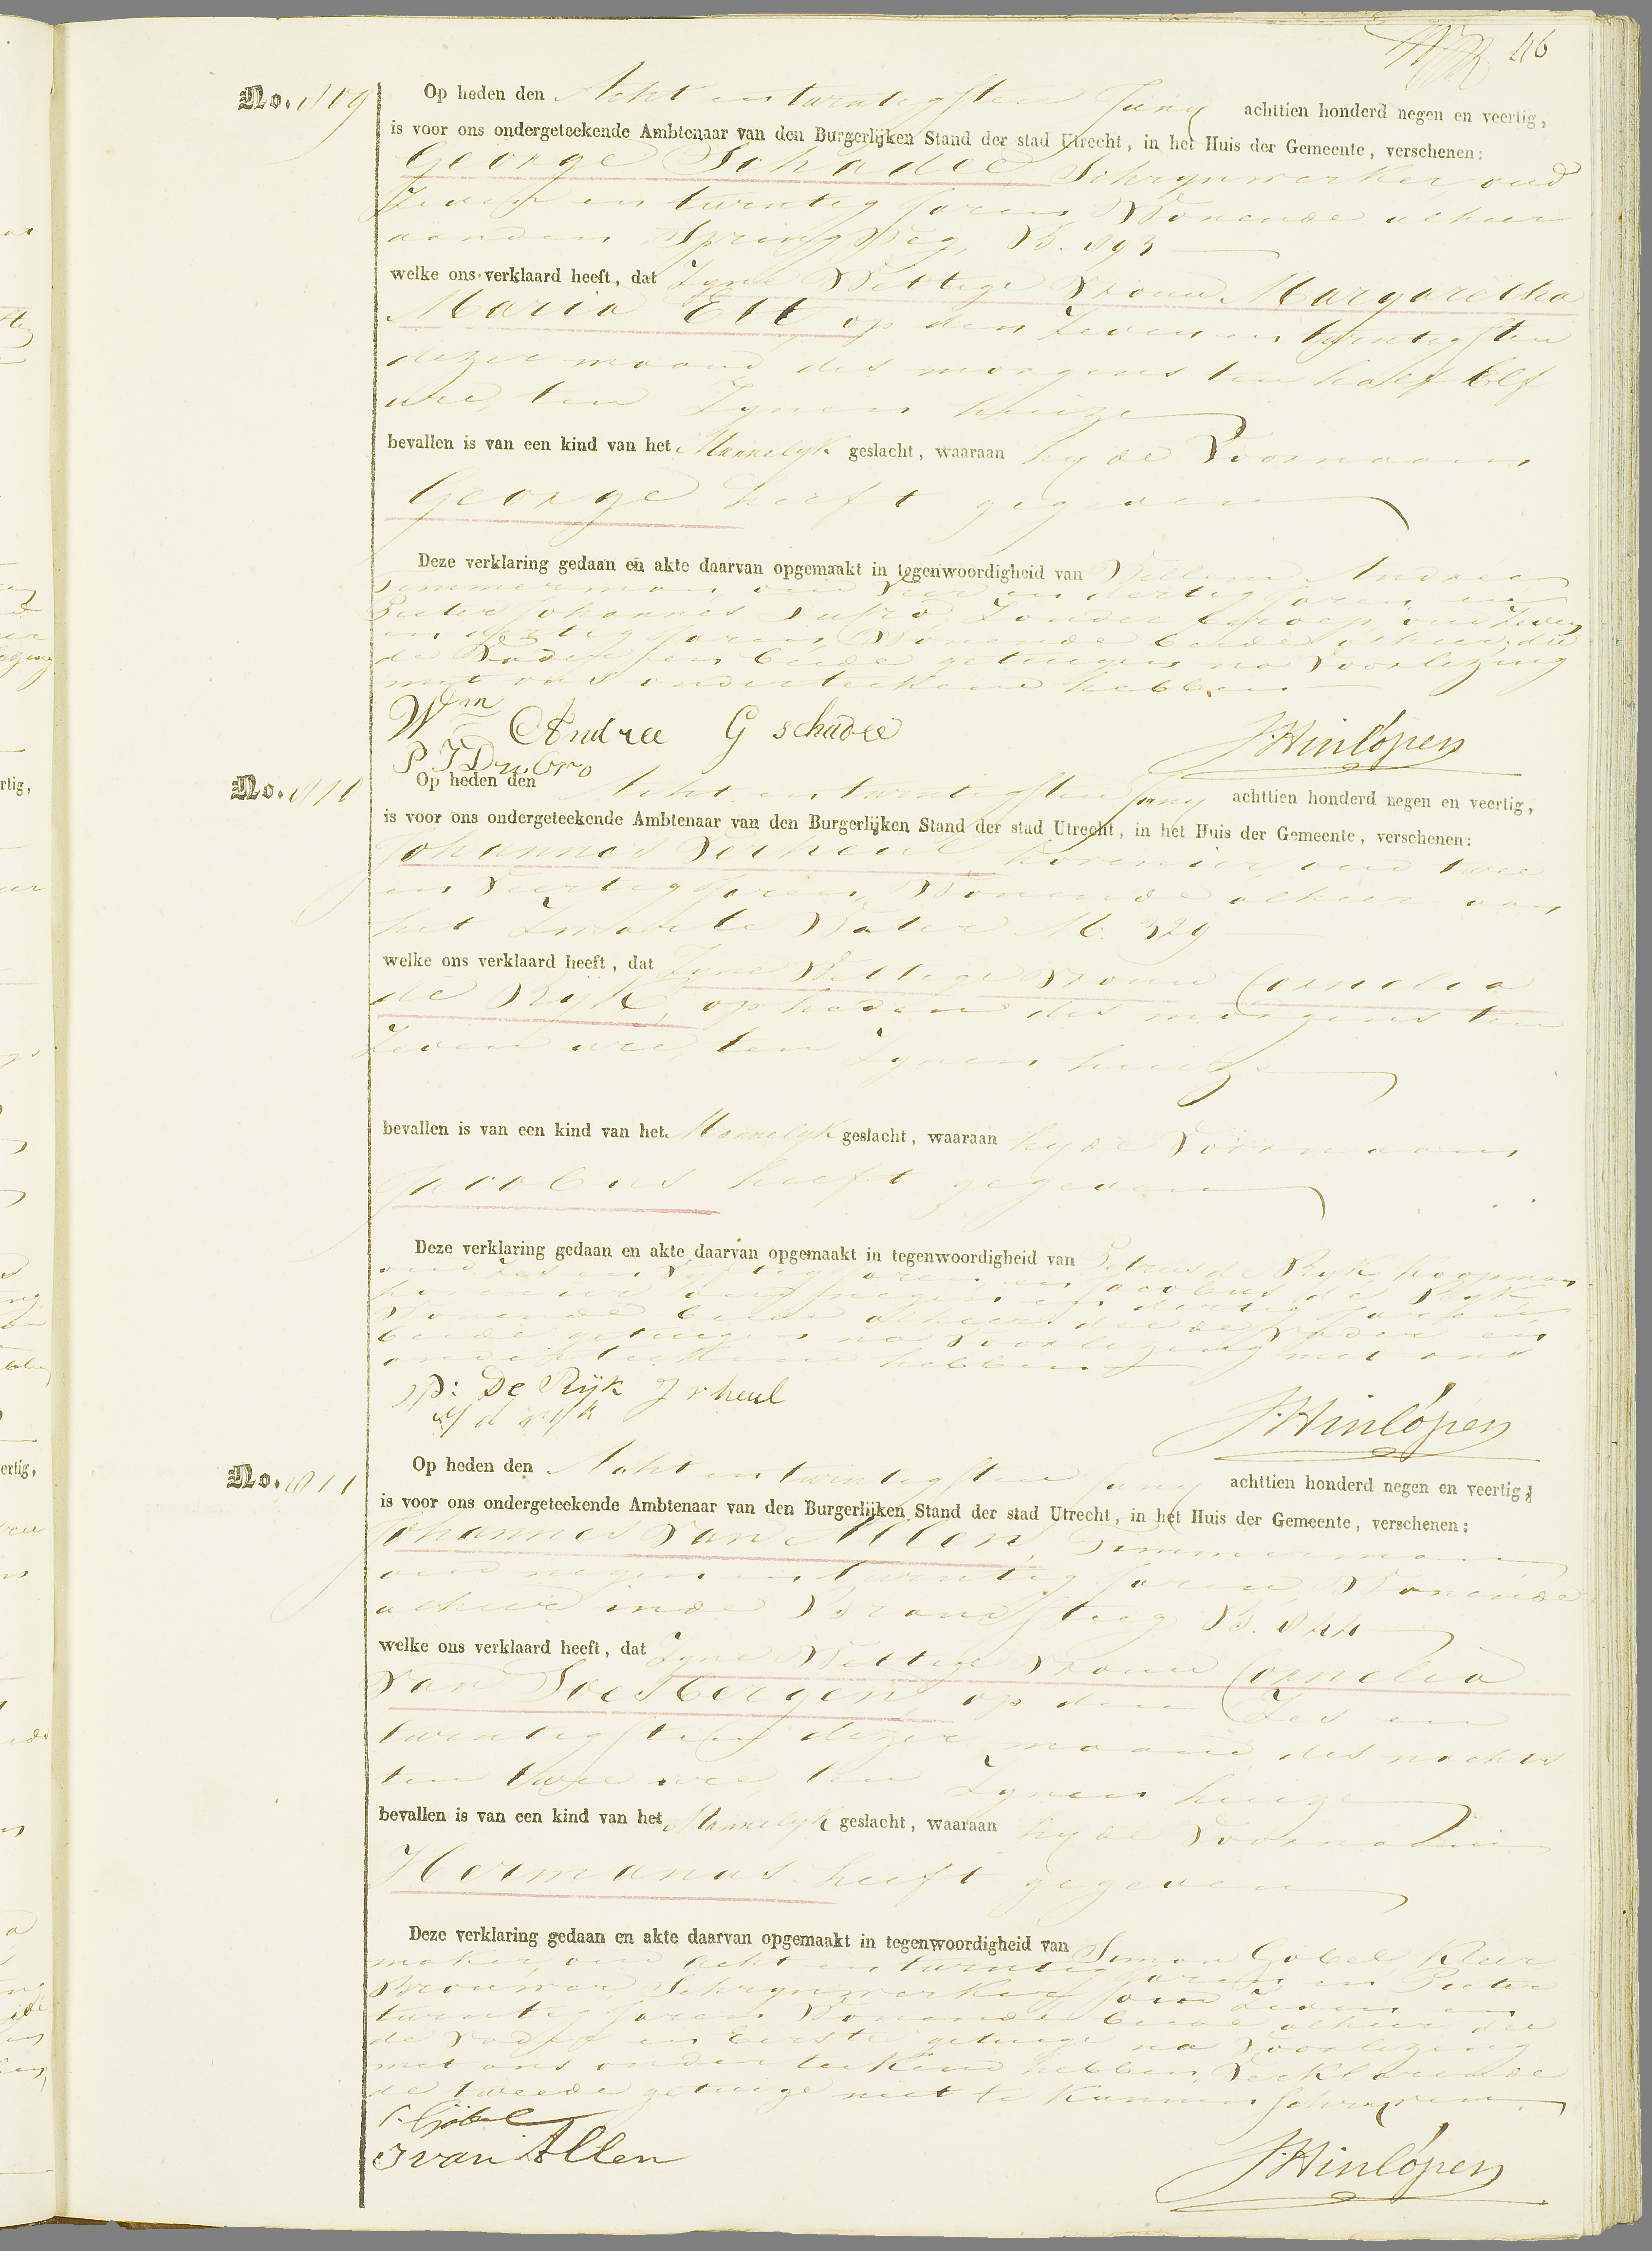 46
No. 809
Op heden den Acht en twintigsten Juny achttien honderd negen en veertig,
is voor ons ondergeteekende Ambtenaar van den Burgerlijken Stand der stad Utrecht, in het Huis der Gemeente, verschenen:
George Schadee, Schrynwerker, oud
Zeven en twintig Jaren, Wonende alhier
aan den Springweg, B. 193
welke ons verklaard heeft, dat Zyne Wettige Vrouw Margaretha
Maria Ett op den Zeven en twintigsten
dezer maand des morgens ten half Elf
ure, ten Zynen huize
bevallen is van een kind van het Mannelyk geslacht, waaraan hy de Voornaam
George heeft gegeven
Deze verklaring gedaan en akte daarvan opgemaakt in tegenwoordigheid van Willem Andree
Timmerman oud Vier en dertig Jaren en
Pieter Johannes Dubro, Zonder beroep, oud Zeven
en dertig Jaren, Wonende beide alhier, die
de Vader en beide getuigen na Voorlezing
met ons onderteekend hebben
Wm Andree G schadee
P J Dubro J. Hinlópen
No. 810
Op heden den Acht en twintigsten Juny achttien honderd negen en veertig,
is voor ons ondergeteekende Ambtenaar van den Burgerlijken Stand der stad Utrecht, in het Huis der Gemeente, verschenen:
Johannes Verheul, hovenier, oud twee
en Veertig Jaren, Wonende alhier aan
het Zwarte Water M. 329
welke ons verklaard heeft, dat Zyne Wettige Vrouw Cornelia
de Rijk, op heden des morgens ten
Zeven ure, ten Zynen huize
bevallen is van een kind van het Mannelyk geslacht, waaraan hy de Voornaam
Jacobus heeft gegeven
Deze verklaring gedaan en akte daarvan opgemaakt in tegenwoordigheid van Petrus de Ryk, Koopman
oud Zes en Vyftig Jaren, en Jacobus de Ryk
hovenier oud negen en dertig Jaren,
Wonende beide alhier, die de Vader en
beide getuigen na Voorlezing met ons
onderteekend hebben
P: De Rijk J v heul
J. Hinlópen
No. 811
Op heden den Acht en twintigsten Juny achttien honderd negen en veertig,
is voor ons ondergeteekende Ambtenaar van den Burgerlijken Stand der stad Utrecht, in het Huis der Gemeente, verschenen:
Johannes Van Allen, Timmerman
oud negen en twintig Jaren, Wonende
alhier in de Brandsteeg B. 844
welke ons verklaard heeft, dat Zyne Wettige Vrouw Cornelia
Van Soesbergen op den Zes en
twintigsten dezer maand des nachts
ten twee ure, ten Zynen huize
bevallen is van een kind van het Mannelyk geslacht, waaraan hy de Voornaam
Hermanus heeft gegeven
Deze verklaring gedaan en akte daarvan opgemaakt in tegenwoordigheid van Simon Gobel Kleer
maker, oud Acht en twintig Jaren, en Pieter
Brouwer, Schrynwerker, oud Zeven en
twintig Jaren, Wonende beide alhier, die
de Vader en Eerste getuige na Voorlezing
met ons onderteekend hebben, Verklarende
de tweede getuige niet te kunnen Schryven
S. Göbel
J van Allen J. Hinlópen